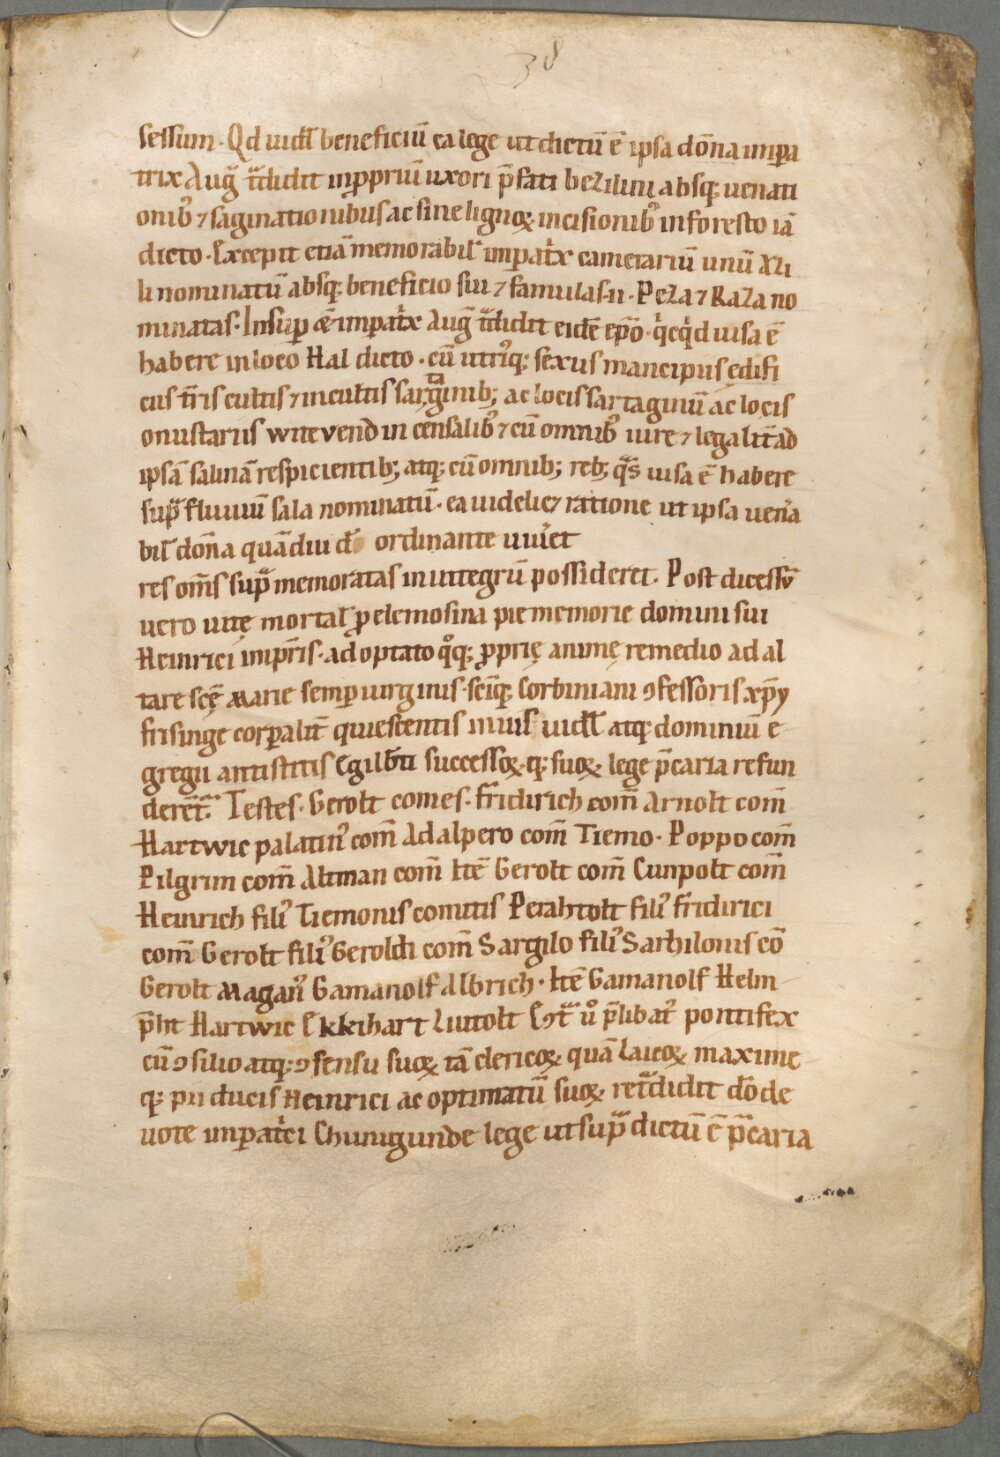 38
sessum · Qd uidł beneficiū ea lege ut dictū ē ipsa dōna impa
trix Aug̃ t̃didit in ꝓpriū uxori p̄fati bezilini absq; uenati
onib᾽ ⁊ saginationibus ac sine lignoꝝ incisionib᾽ in foresto iā
dicto · Excepit etiā memorabil᾽ impat̾x camerariū unū Azi
li nominatū absq; beneficio sui ⁊ famulas · ii · Peza ⁊ Raza no
minatas · Insup̱ ... impat̾x Aug̃ t̃didit eidē ep̄o · q̾cq̾d uisa ē
habere in loco Hal dicto · cū utri᾽q; sexus mancipiis ędifi
ciis t̄ris cultis ⁊ incultis sarginib; ac locis sartaginiū ac locis
onustariis witevendin censalib᾽ ⁊ cū omnib᾽ iure ⁊ legalit̄ ad
ipsā salinā respicientib; atq; cū omnib; reb; qͣs uisa ē habere
supͣ fluuiū sala nominatū · ea uidelicꝫ ratione ut ipsa uen̾a
bil᾽ dōna quādiu dō ordinante uiu̾et
res om̄s supͣ memoratas in integrū possideret · Post dicessū
uero uitę mortal᾽ ꝓ elemosina pie memorie domini sui
Heinrici imp̄ris · ad optato qͦq; ꝓprię animę remedio ad al
tare scę̄ Marie semp̱ uirginis · sc̄iq; Corbiniani ꝯfessoris xp̄i
frisinge corp̱alit̄ quiescentis in ius uidł atq; dominiū e
gregii antistitis Egilb̄ti successoꝝ · q; suoꝝ · lege p̄caria refun
derēt̾ · Testes · Gerolt comes · Fridirich com̄ Arnolt com̄
Hartwic palatin᾽ com̄ Adalpero com̄ Tiemo · Poppo com̄
Pilgrim com̄ Altman com̄ Itē Gerolt com̄ Cunpolt com̄
Heinrich fili᾽ Tiemonis comitis Perahtolt fili᾽ fridirici
com̄ Gerolt fili᾽ Geroldi com̄ Sargilo fili᾽ Sarhilonis cō
Gerolt Magan᾽ Gamanolf Albrich · Itē Gamanolf Helm
p̄ht Hartwic Ekkihart Liutolt Ꝯtͣ uͦ p̄libat᾽ pontifex
cū ꝯsilio atq; ꝯsensu suoꝝ tā clericoꝝ quā Laicoꝝ maxime
q; pii ducis Heinrici ac optimatū suoꝝ ret̃didit dōde
uote impat̾ci Chunigunde lege ut supͣ dictū ē p̄caria